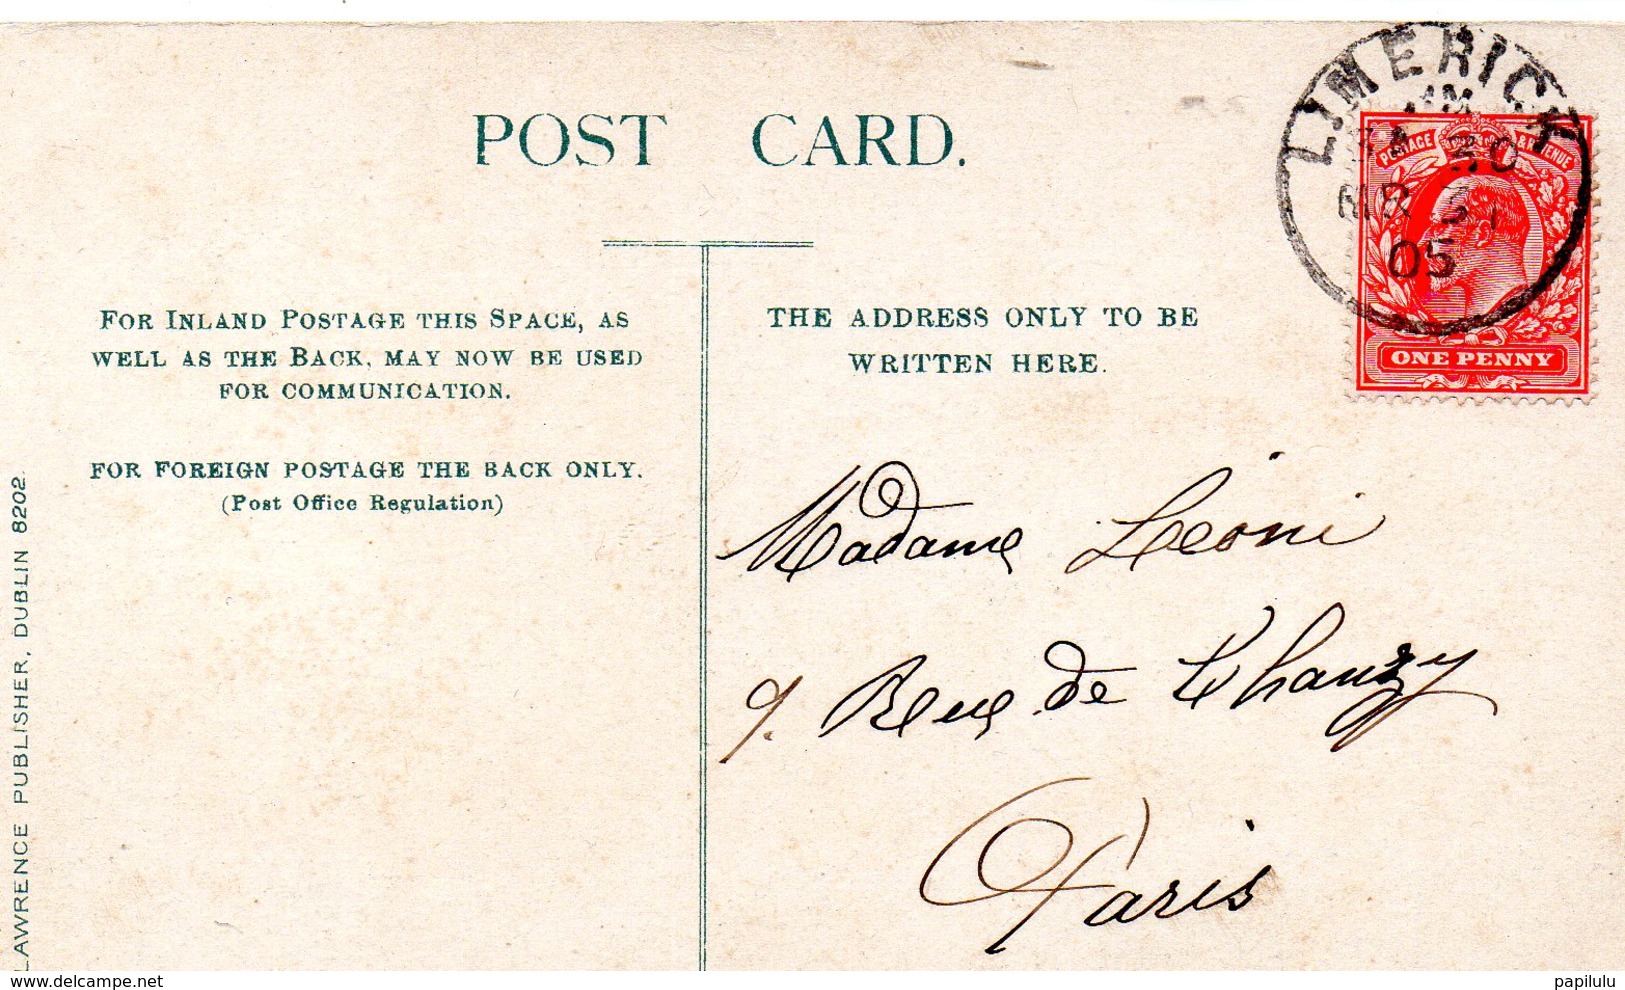 POST CARD.
LIMERICK
MR 31
05
POSTAGE & REVENUE
ONE PENNY
FOR INLAND POSTAGE THIS SPACE, AS
WELL AS THE BACK, MAY NOW BE USED
FOR COMMUNICATION.
FOR FOREIGN POSTAGE THE BACK ONLY.
(Post Office Regulation)
THE ADDRESS ONLY TO BE
WRITTEN HERE.
Madame Leoni
9. Rue de
Paris
LAWRENCE PUBLISHER, DUBLIN 8202.
delcampe.net
papilulu